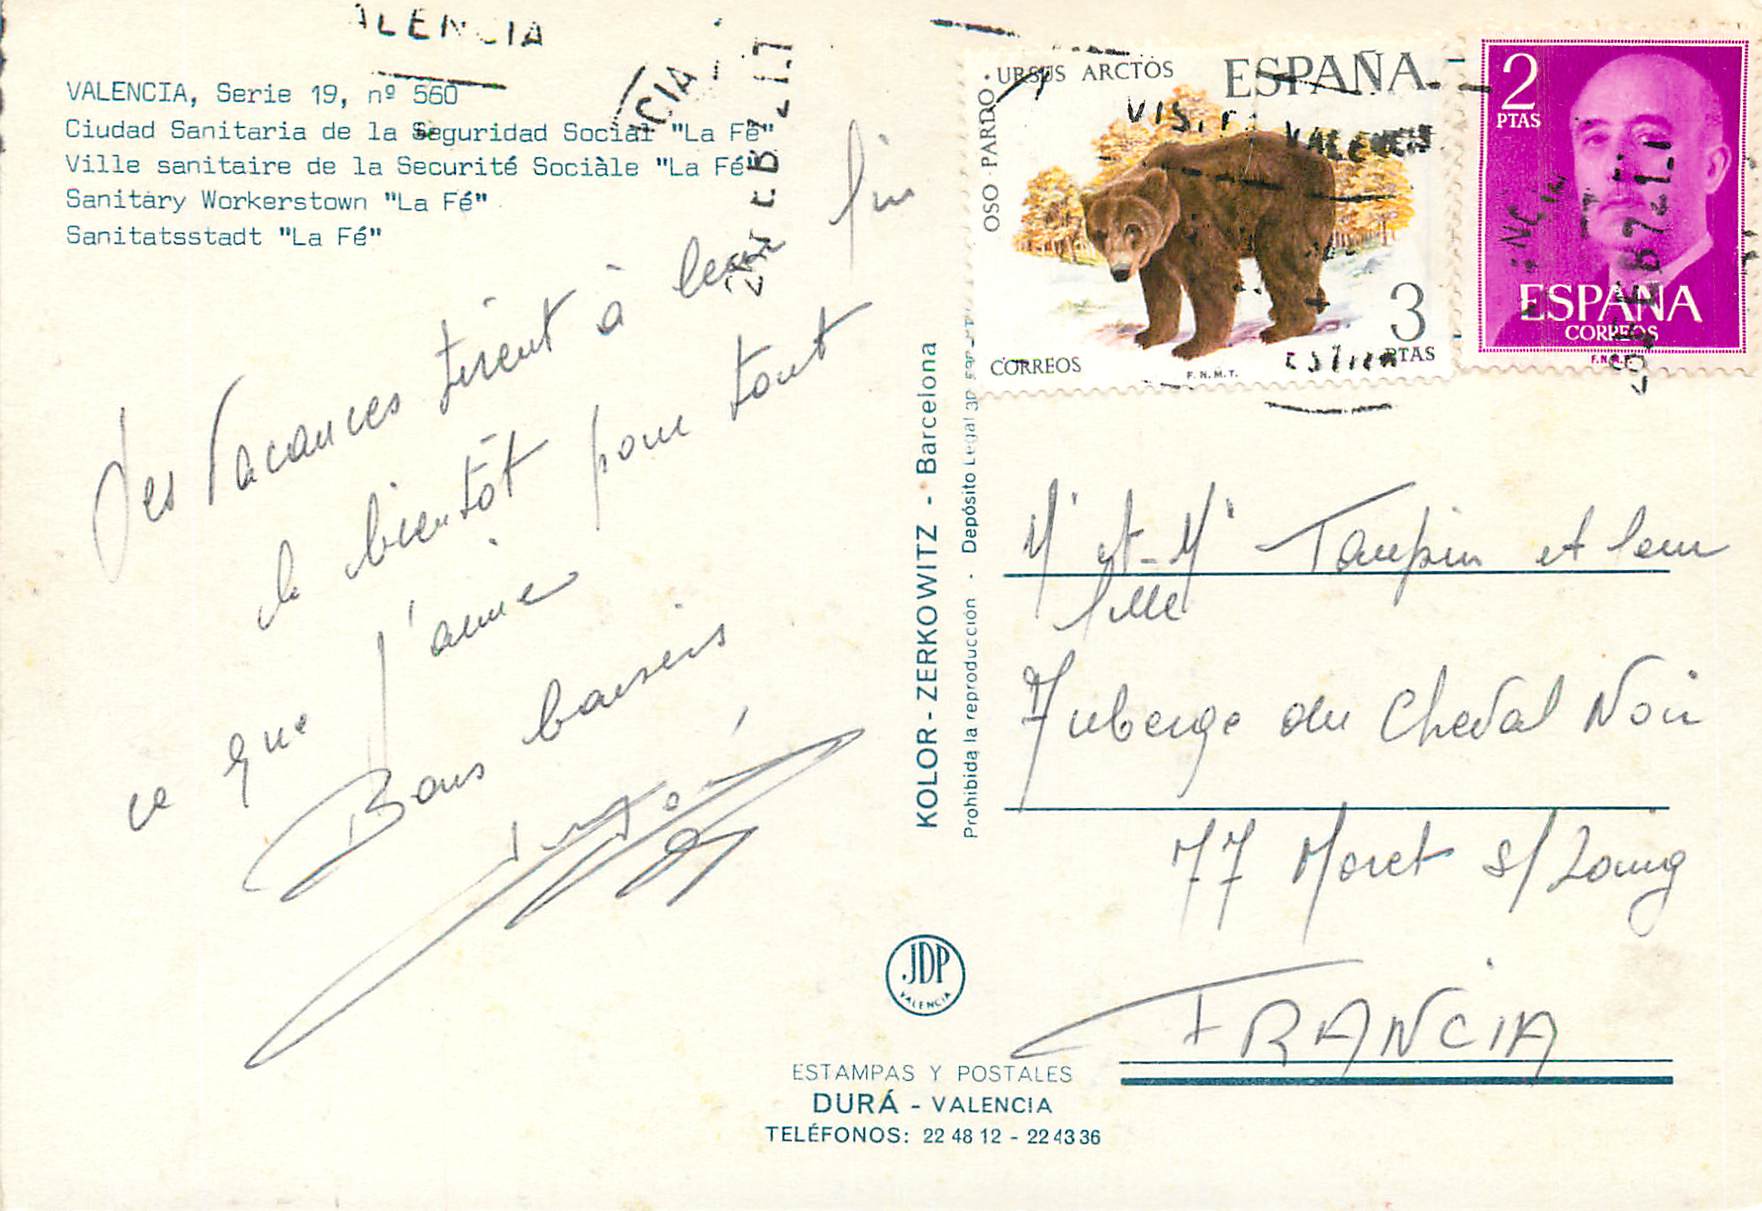 VALENCIA
VALENCIA, Serie 19, nº 560
Ciudad Sanitaria de la Seguridad Social "La Fé"
Ville sanitaire de la Securité Sociàle "La Fé"
Sanitary Workerstown "La Fé"
Sanitatsstadt "La Fé"
Les Vacances tirent à leur fin
à bientôt pour tout
ce que j'aime
Bons baisers
KOLOR - ZERKOWITZ - Barcelona
Prohibida la reproducción - Depósito Legal
OSO PARDO · URSUS ARCTOS
ESPAÑA
VALENCIA
CORREOS
F.N.M.T.
3 PTAS
2
PTAS
ESPAÑA
CORREOS
F.N.M.T.
Mr et Me Taupin et leur
fille
Auberge du Cheval Noir
77 Moret s/Loing
FRANCIA
JDP
VALENCIA
ESTAMPAS Y POSTALES
DURÁ - VALENCIA
TELÉFONOS: 22 48 12 - 22 43 36